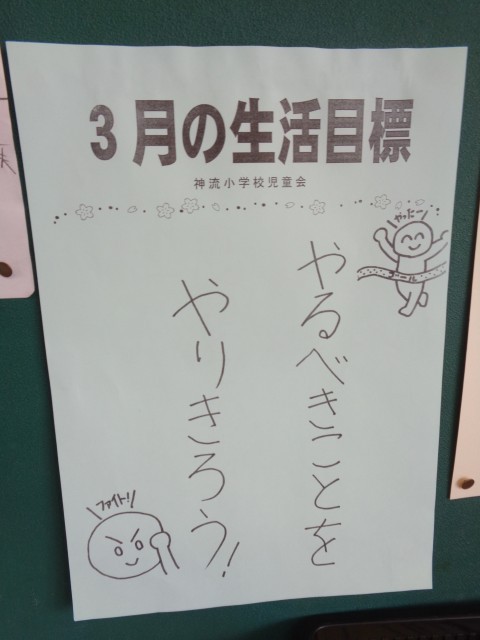 3月の生活目標
神流小学校児童会
やったー
ゴール
やるべきことを
やりきろう!
ファイト!!